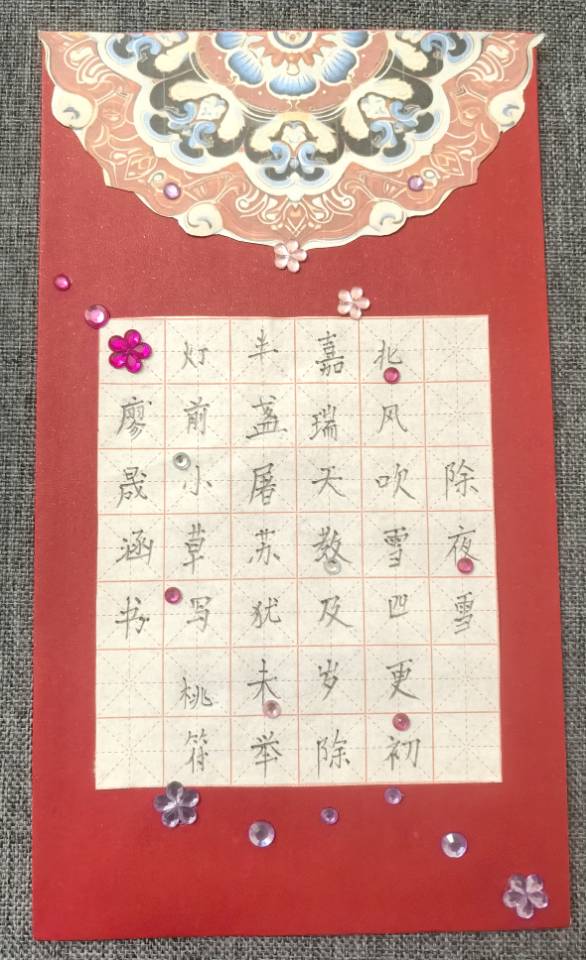 除夜雪
北风吹雪四更初
嘉瑞天教及岁除
半盏屠苏犹未举
灯前小草写桃符
廖晟涵书